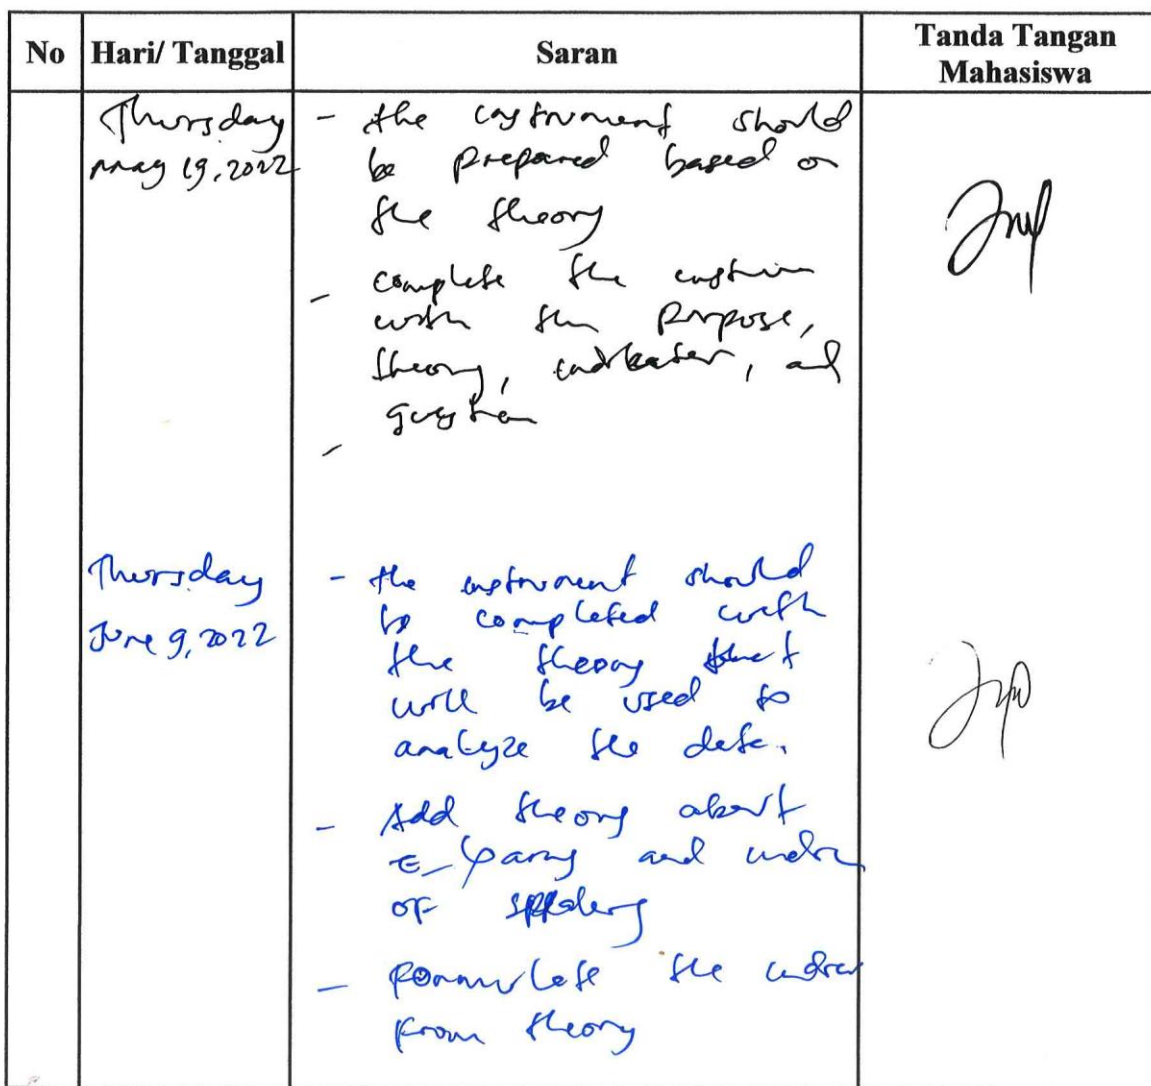 No Hari/ Tanggal Saran Tanda Tangan Mahasiswa
Thursday
may 19, 2022
- the instrument should
be prepared based on
the theory
- complete the
with the purpose,
theory, indicator, and
question
-
Thursday
June 9, 2022
- the instrument should
be completed with
the theory that
will be used to
analyze the data.
- Add theory about
and
of speaking
- Formulate the
from theory